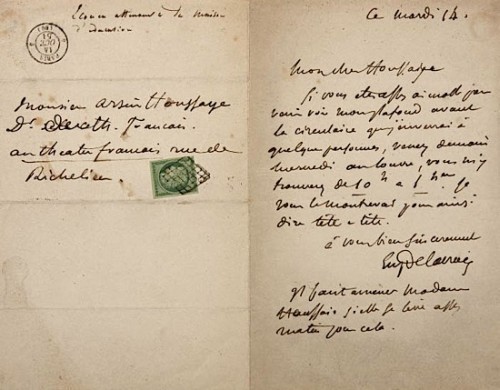 Monsieur Arsène Houssaye
Dr du th. français
au theatre français rue de
Richelieu.
Ce mardi 14.
Mon cher Houssaye
Si vous etes assez aimable pour
venir voir mon plafond avant
la circulaire que j'enverrai à
quelques personnes, venez demain
mercredi au louvre, vous m'y
trouverez de 10 h à 1 heure. Je
vous le montrerai pour ainsi
dire tête a tête.
à vous bien sincerement
Eug Delacroix
Il faut amener Madame
Houssaye si elle se lève assez
matin pour cela.